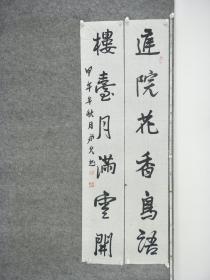 庭院花香鳥語
樓臺月滿雲開
甲午年秋月